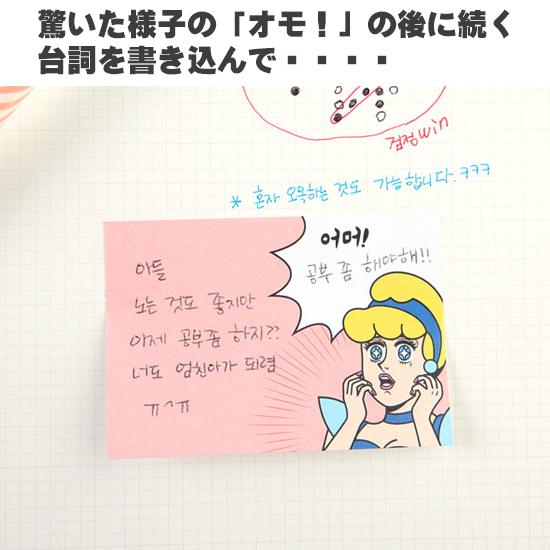 驚いた様子の「オモ！」の後に続く
台詞を書き込んで・・・・
검정win
* 혼자 오목하는 것도 가능합니다. ㅋㅋㅋ
어머!
공부 좀 해야해!!
아들
노는 것도 좋지만
이제 공부좀 하지??
너도 엄친아가 되렴
ㅠ^ㅠ